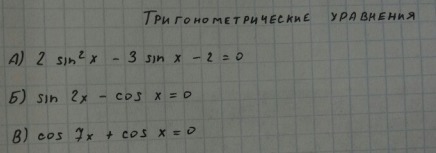 Тригонометрические уравнения
А) 2 sin² x - 3 sin x - 2 = 0
Б) sin 2x - cos x = 0
В) cos 7x + cos x = 0